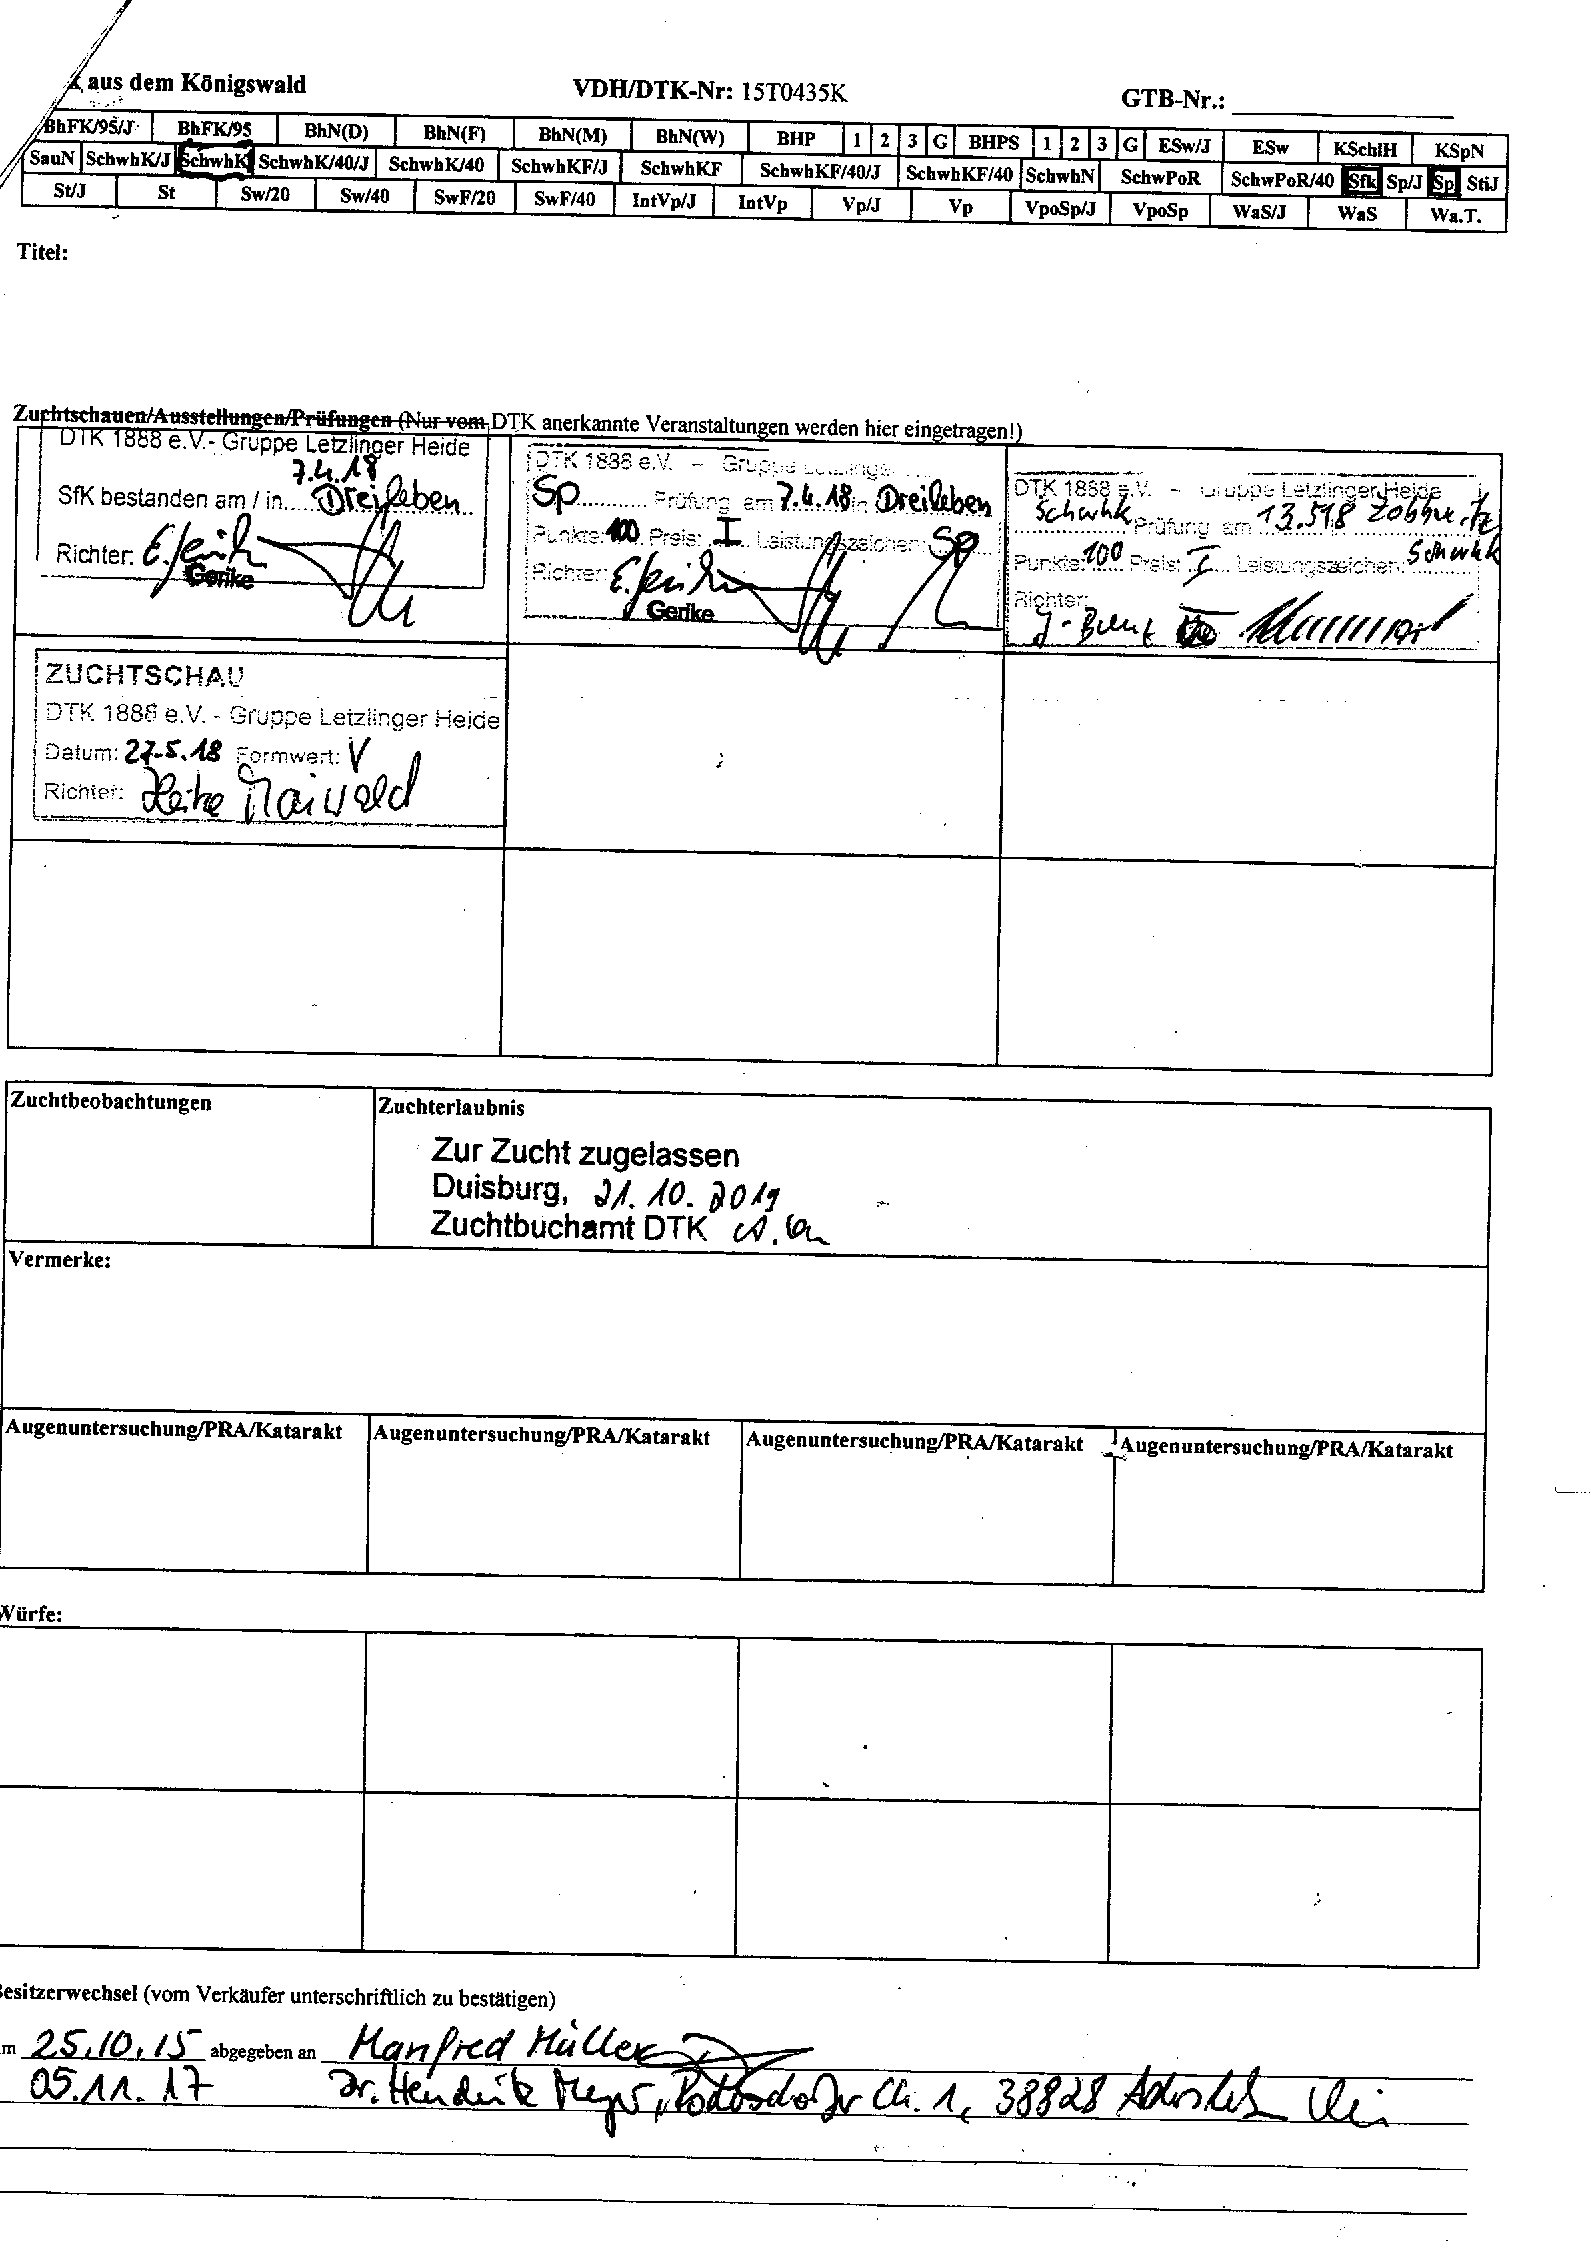 aus dem Königswald VDH/DTK-Nr: 15T0435K GTB-Nr.:
BhFK/95/J BhFK/95 BhN(D) BhN(F) BhN(M) BhN(W) BHP 1 2 3 G BHPS 1 2 3 G ESw/J ESw KSchlH KSpN
SauN SchwhK/J SchwhK SchwhK/40/J SchwhK/40 SchwhKF/J SchwhKF SchwhKF/40/J SchwhKF/40 SchwhN SchwPoR SchwPoR/40 Sfk Sp/J Sp StiJ
St/J St Sw/20 Sw/40 SwF/20 SwF/40 IntVp/J IntVp Vp/J Vp VpoSp/J VpoSp WaS/J WaS Wa.T.
Titel:
Zuchtschauen/Ausstellungen/Prüfungen (Nur vom DTK anerkannte Veranstaltungen werden hier eingetragen!)
DTK 1888 e.V.- Gruppe Letzlinger Heide
7.4.18
SfK bestanden am / in Dreileben
Richter:
Gerike
DTK 1888 e.V. - Gruppe
Sp Prüfung am 7.4.18 in Dreileben
Punkte: 100 Preis: I Leistungszeichen: Sp
Richter:
Gerike
DTK 1888 e.V. - Gruppe Letzlinger Heide
Schwhk Prüfung am 13.5.18
Punkte: 100 Preis: I Leistungszeichen: Schwhk
Richter:
ZUCHTSCHAU
DTK 1888 e.V. - Gruppe Letzlinger Heide
Datum: 27.5.18 Formwert: V
Richter: Heike Maiwald
Zuchtbeobachtungen
Zuchterlaubnis
Zur Zucht zugelassen
Duisburg, 21.10.2019
Zuchtbuchamt DTK
Vermerke:
Augenuntersuchung/PRA/Katarakt Augenuntersuchung/PRA/Katarakt Augenuntersuchung/PRA/Katarakt Augenuntersuchung/PRA/Katarakt
Würfe:
Besitzerwechsel (vom Verkäufer unterschriftlich zu bestätigen)
m 25.10.15 abgegeben an Manfred Müller
05.11.17 Dr. Hendrik Meyer, Ch. 1, 38828